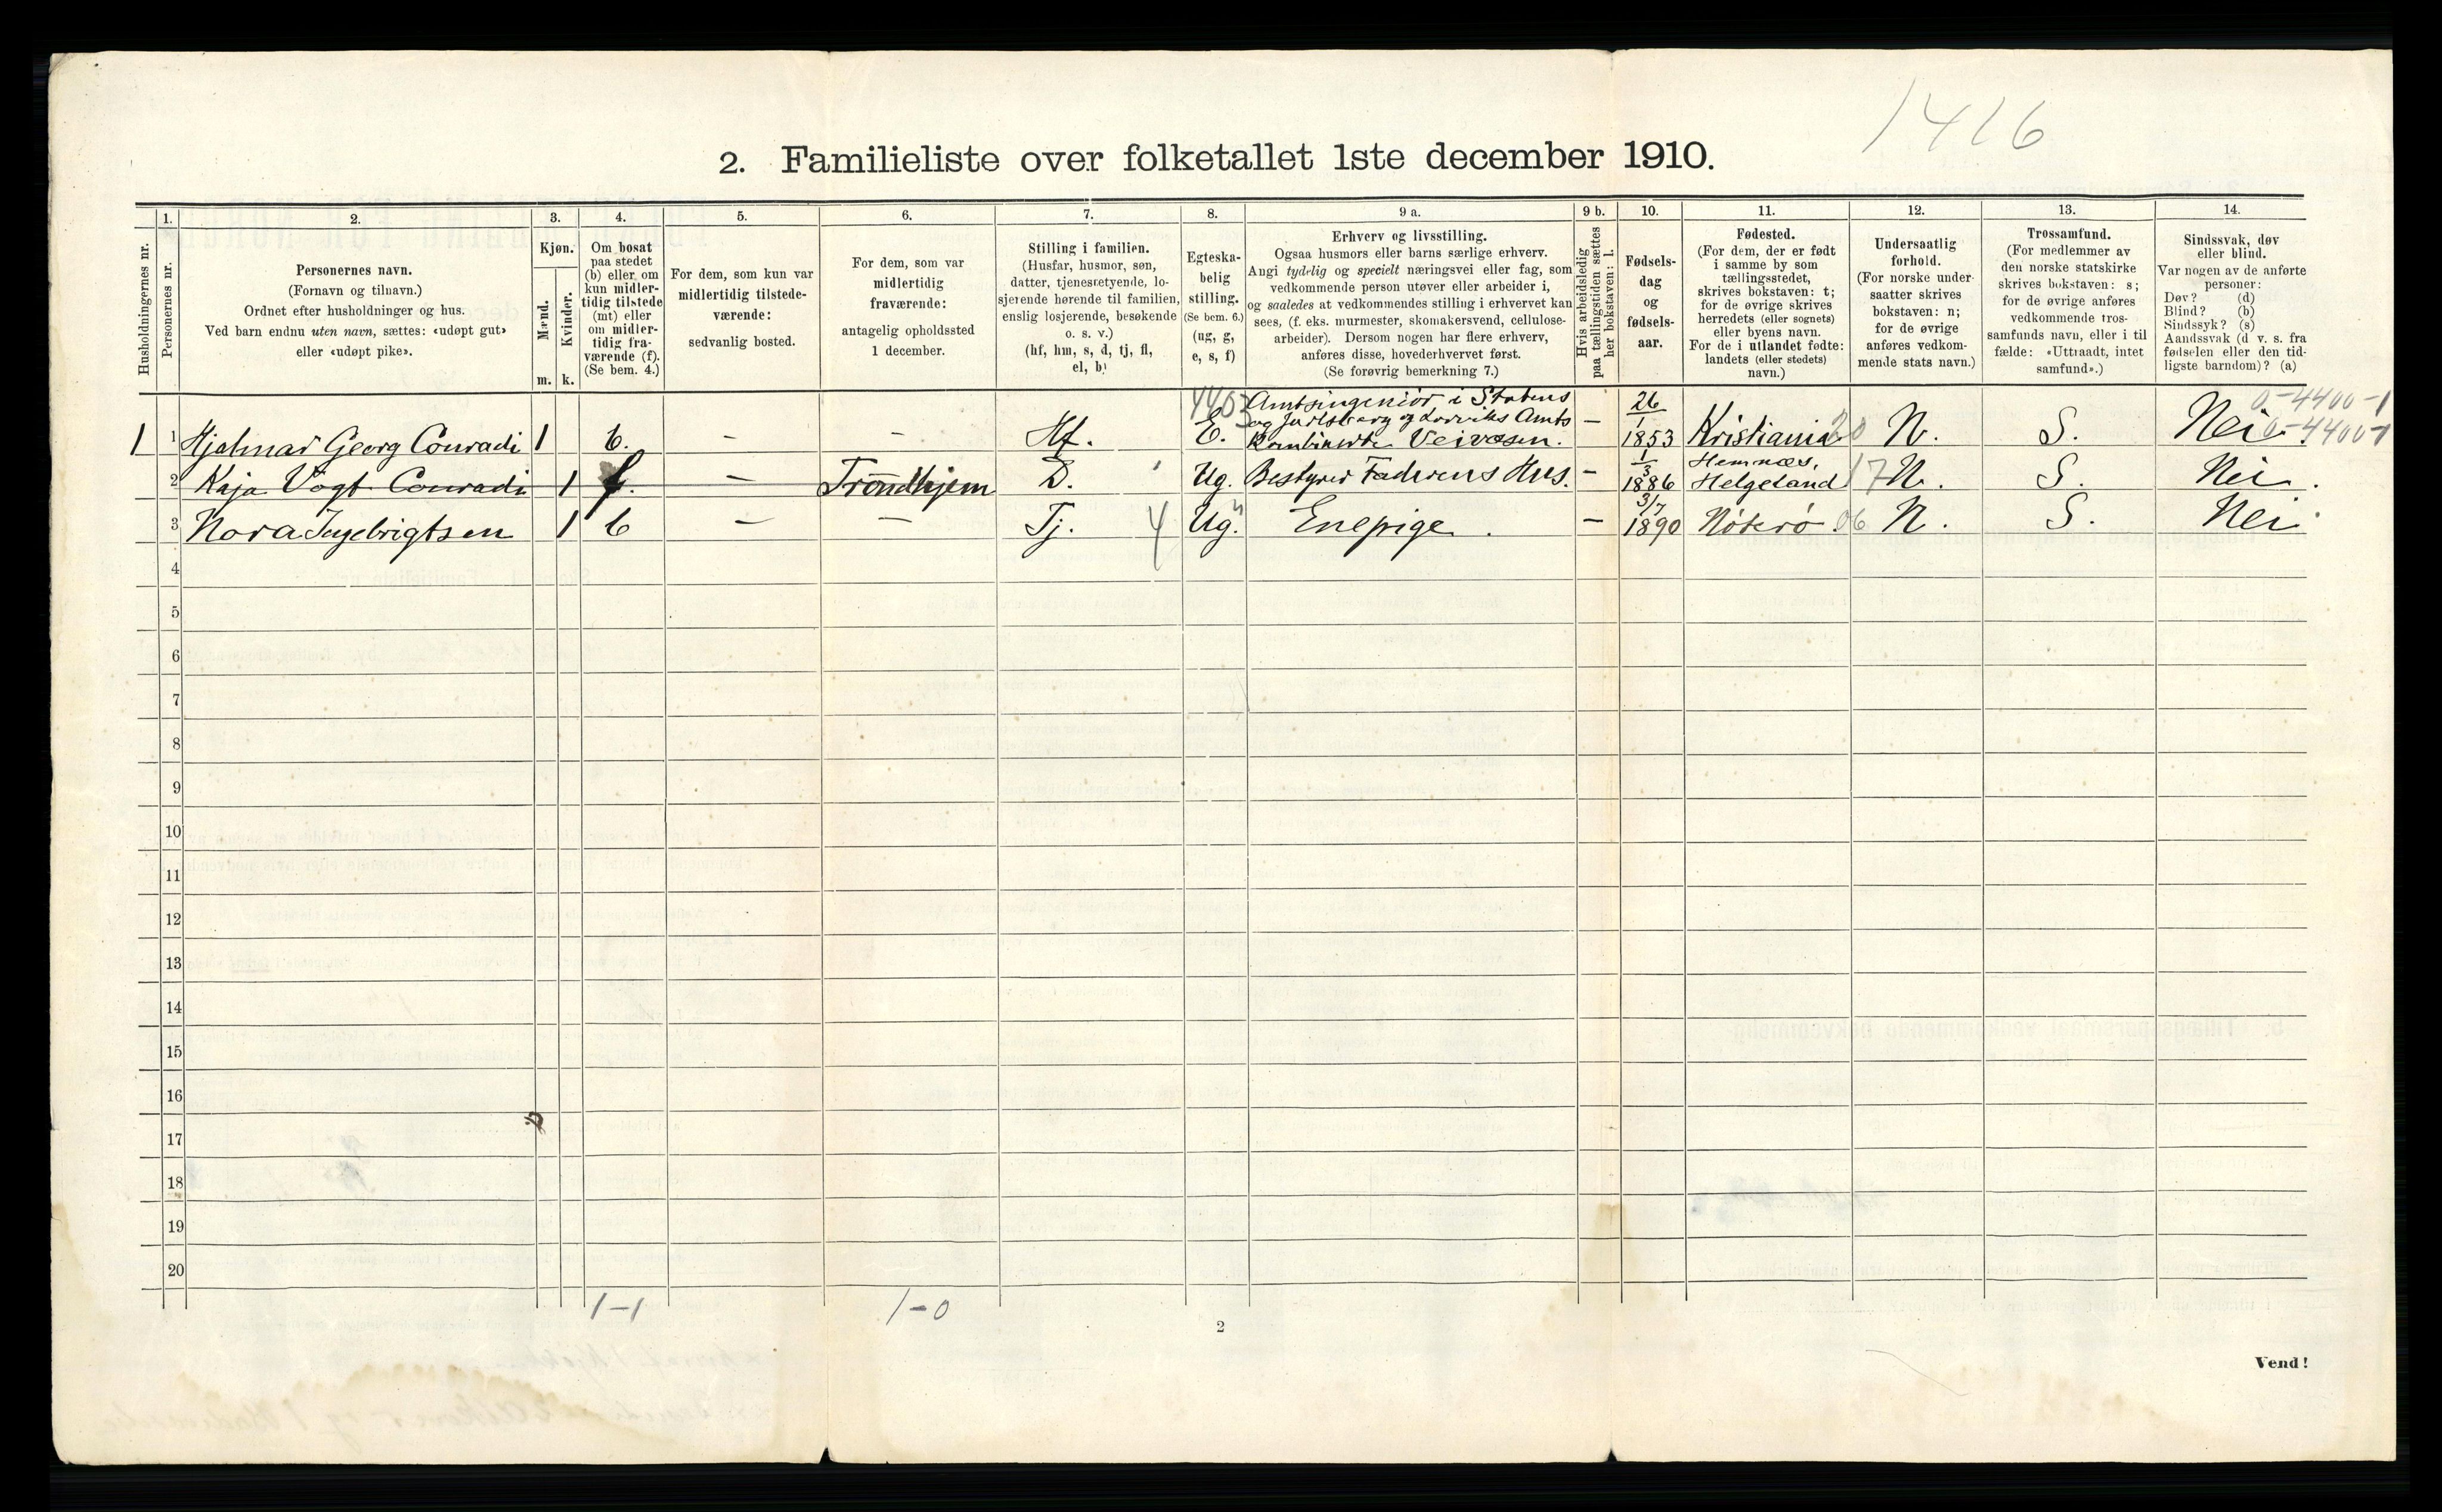 1416
2. Familieliste over folketallet 1ste december 1910.
Husholdningernes nr.
1.
Personernes nr.
2.
Personernes navn.
(Fornavn og tilnavn.)
Ordnet efter husholdninger og hus.
Ved barn endnu uten navn, sættes: «udøpt gut»
eller «udøpt pike».
3.
Kjøn.
Mænd.
Kvinder.
m. k.
4.
Om bosat
paa stedet
(b) eller om
kun midler-
tidig tilstede
(mt) eller
om midler-
tidig fra-
værende (f).
(Se bem. 4.)
5.
For dem, som kun var
midlertidig tilstede-
værende:
sedvanlig bosted.
6.
For dem, som var
midlertidig
fraværende:
antagelig opholdssted
1 december.
7.
Stilling i familien.
(Husfar, husmor, søn,
datter, tjenestetyende, lo-
sjerende hørende til familien,
enslig losjerende, besøkende
o. s. v.)
(hf, hm, s, d, tj, fl,
el, b)
8.
Egteska-
belig
stilling.
(Se bem. 6.)
(ug, g,
e, s, f)
9 a.
Erhverv og livsstilling.
Ogsaa husmors eller barns særlige erhverv.
Angi tydelig og specielt næringsvei eller fag, som
vedkommende person utøver eller arbeider i,
og saaledes at vedkommendes stilling i erhvervet kan
sees, (f. eks. murmester, skomakersvend, cellulose-
arbeider). Dersom nogen har flere erhverv,
anføres disse, hovederhvervet først.
(Se forøvrig bemerkning 7.)
9 b.
Hvis arbeidsledig
paa tællingstiden sættes
her bokstaven: l.
10.
Fødsels-
dag
og
fødsels-
aar.
11.
Fødested.
(For dem, der er født
i samme by som
tællingsstedet,
skrives bokstaven: t;
for de øvrige skrives
herredets (eller sognets)
eller byens navn.
For de i utlandet fødte:
landets (eller stedets)
navn.)
12.
Undersaatlig
forhold.
(For norske under-
saatter skrives
bokstaven: n;
for de øvrige
anføres vedkom-
mende stats navn.)
13.
Trossamfund.
(For medlemmer av
den norske statskirke
skrives bokstaven: s;
for de øvrige anføres
vedkommende tros-
samfunds navn, eller i til-
fælde: «Uttraadt, intet
samfund».)
14.
Sindssvak, døv
eller blind.
Var nogen av de anførte
personer:
Døv? (d)
Blind? (b)
Sindssyk? (s)
Aandssvak (d. v. s. fra
fødselen eller den tid-
ligste barndom)? (a)
1 1 Hjalmar Georg Conradi 1 b. – – Hf. 4403 E. Amtsingeniør i Statens
og Jarlsberg og Larviks Amts
kombinerte Veivæsen. – 26/1 1853 Kristiania 20 N. S. Nei. 0-4400-1
0-4400-1
2 Kaja Vogt Conradi 1 f. – Trondhjem D. Ug. Bestyrer Faderens Hus. – 1/3 1886 Hemnæs,
Helgeland 17 N. S. Nei.
3 Nora Ingebrigtsen 1 b – – Tj. 4 Ug. Enepige. – 3/7 1890 Nøterø. 06 N. S. Nei.
4
5
6
7
8
9
10
11
12
13
14
15
16
17
18
19
20
1-1 1-0
2
Vend!